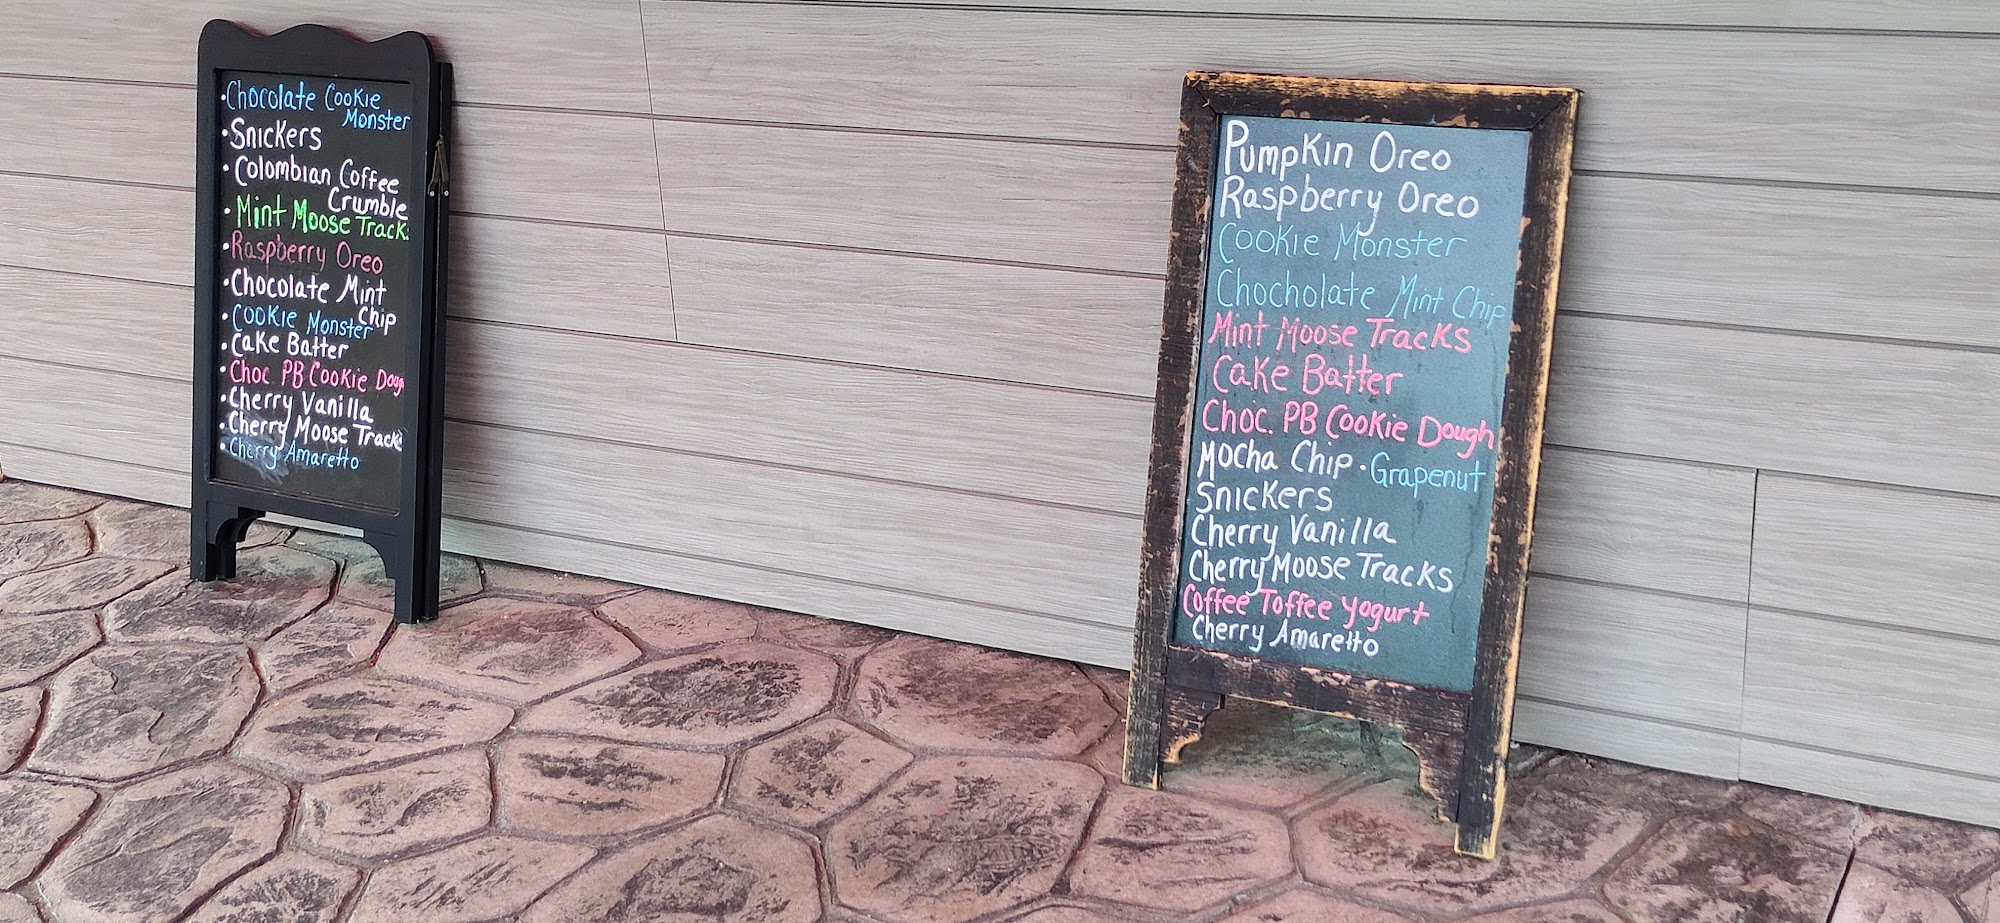 • Chocolate Cookie
Monster
• Snickers
• Colombian Coffee
Crumble
• Mint Moose Tracks
• Raspberry Oreo
• Chocolate Mint
Chip
• Cookie Monster
• Cake Batter
• Choc PB Cookie Dough
• Cherry Vanilla
• Cherry Moose Tracks
• Cherry Amaretto
Pumpkin Oreo
Raspberry Oreo
Cookie Monster
Chocholate Mint Chip
Mint Moose Tracks
Cake Batter
Choc. PB Cookie Dough
Mocha Chip · Grapenut
Snickers
Cherry Vanilla
Cherry Moose Tracks
Coffee Toffee Yogurt
Cherry Amaretto